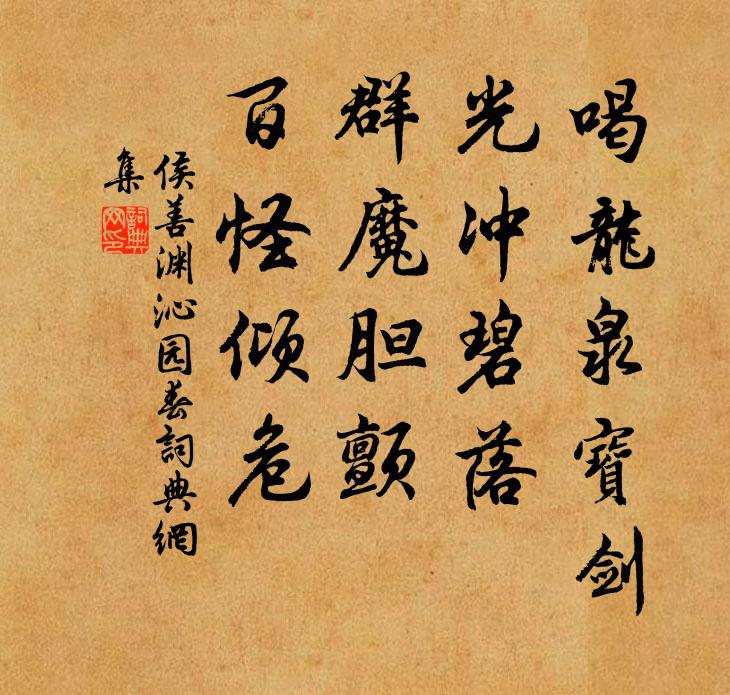 喝龍泉寶劍
光冲碧落
群魔胆颤
百怪倾危
侯善渊沁园春詞典網
集
詞典
网印